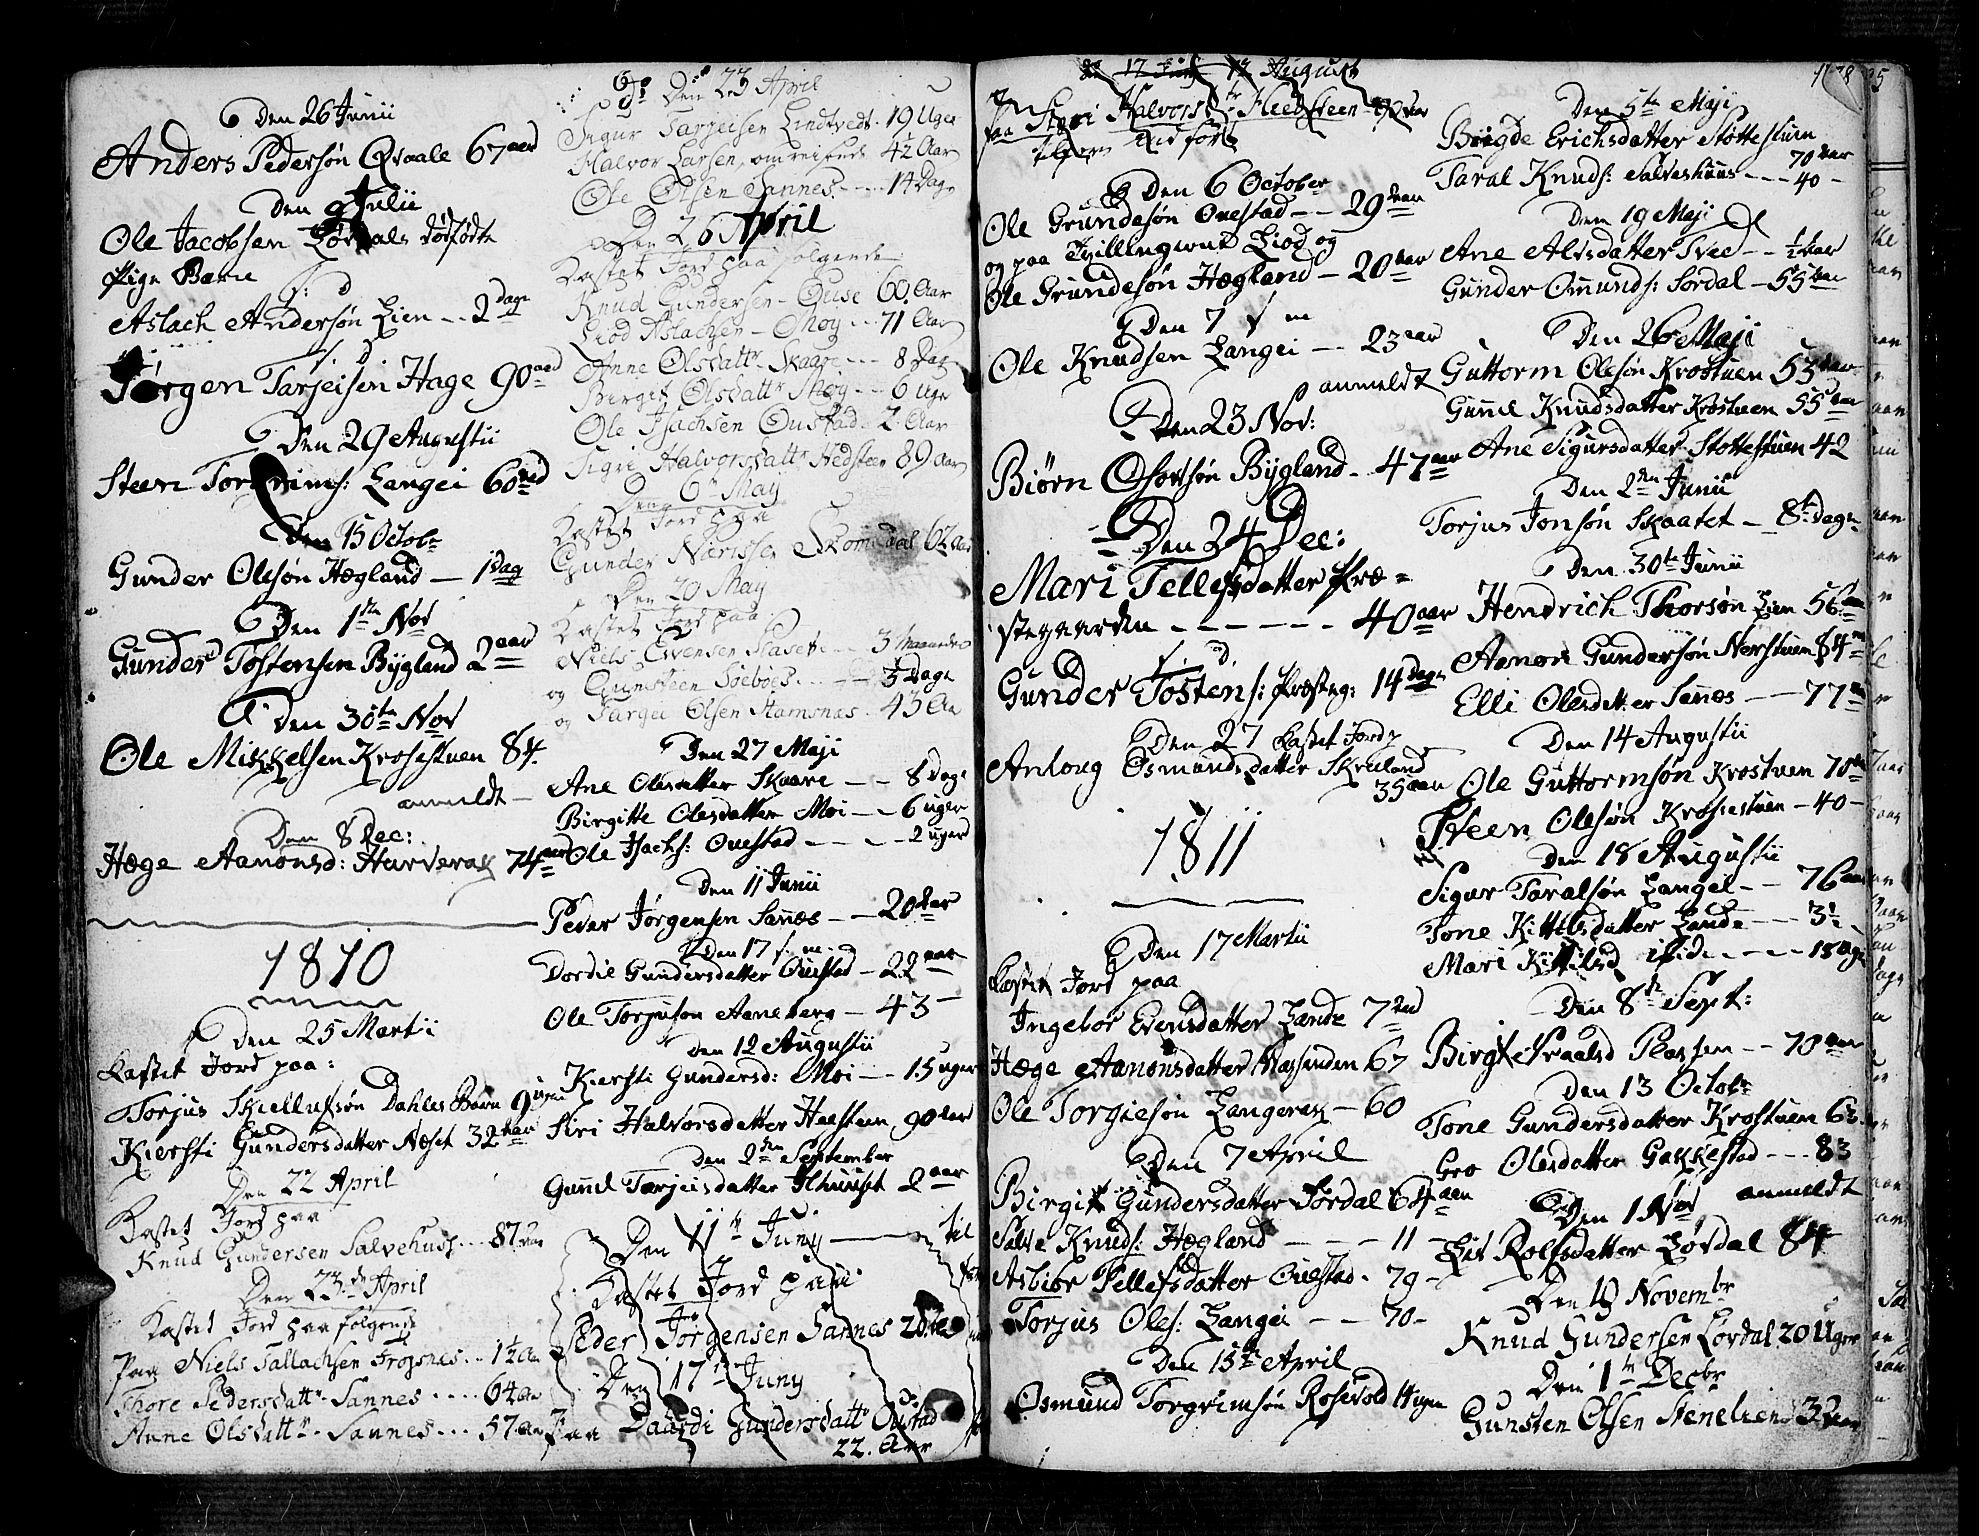 Den 26 Junii
Anders Pedersøn Qvaale 67 aar
Den Julii
Ole Jacobsen Lørdals dødfødte
Pige Barn
s: d
Aslach Andersøn Lien - - 2 dage
s: d
Jørgen Tarjeisen Hage 90 aar
Den 29 Augustii
Steen Torgrims: Langei 60 aar
Den 15 Octobr
Gunder Olesøn Hægland — 1 Dag
Den 1ste Nov
Gunder Tostensen Bygland 2 aar
Den 30te Nov
Ole Mikkelsen Krosestuen 84
anmeldt
Den 8 Dec:
Hæge Aanonsd: Hurverak 74 aar
1810
Den 25 Martii
Kastet Jord paa:
Torjus Skiellufsøn Dahles Barn 9 uger
Kiersti Gundersdatter Næset 32 aar
Den 22 April
Kastet Jord paa
Knud Gundersen Salvehuss - - - 87 aar
Den 23de April
Kastet Jord paa følgende
Paa Niels Tallachsen Frøjsnes - - - 1½ Aar
Thore Pedersdattr - Sannes - - - - 64 Aar
Anne Olsdattr - Sannes - - - 57 Aar
Den 23 April
Sigur Tarjeisen Lindtvedt - 19 Uger
Halvor Larsen, omreisende 42 Aar
Ole Olsen Sannes - - - - 14 Dage
Den 26 April
Kastet Jord paa følgende
Knud Gundersen - Ouse 60 Aar
Liod Aslachsen - Moy - - - 71 Aar
Anne Olsdattr Skaare - - - 8 Dage
Birgit Olsdattr Moy - - - 6 Uger
Ole Isachsen Oustad - 2 Aar
Sigri Halvorsdattr Hedsteen 89 Aar
Den 6te May
Kastet Jord paa
Gunder Skomedal 62 Aar
Den 20 May
Kastet Jord paa
Niels Evensen - - 3 Maaneder
og Gunsteen - - - 3 Dage
og Targei Olsen Stamsnes - 43 Aar
Den 27 Maji
Ane Olesdatter Skaare - - 8 Dage
Birgitte Olesdatter Moi - - 6 uger
Ole Isachs: Ouestad - - - - 2 uger
Den 11 Junii
Peder Jørgensen Sannes - - 20 Aar
Den 17 s. m.
Dordie Gundersdatter Ouestad - 22 aar
Ole Torjusson Aaneberg - 43 -
Den 12 Augustii
Kiersti Gundersd: Moi - - 15 uger
Siri Halvorsdatter Heesteen 90 aar
Den 2den September
Gunil Tarjeisdatter 2 aar
Den 11te Juny - - - til
Kastet Jord paa
Peder Jørgensen Sannes 20 Aar
Den 17te Juny
Paa Daardi Gundersdattr Oustad
22. Aar
12 August
paa Sigri Halvorsdtr Heedsteen - 90 Aar
Den 6 October
Ole Grundesøn Ouestad - - 29 aar
og paa Tvillingerne Liod og
Ole Grundesøn Hægland - 20 aar
Den 7 s m
Ole Knudsen Langei - - 23 aar
anmeldt
Den 23 Nov:
Biørn Osøvsøn Bygland - 47 aar
Den 24 Dec:
Mari Tellefsdatter Præ=
stegaarden - - - - - - 40 aar
s. d.
Gunder Tostens: Præsteg: 14 dage
Den 27 Kastet Jord p
Anloug Osmundsdatter Skreland
35 aar
1811
Den 17 Martii
Kastet Jord paa
Ingebor Evensdatter Lande 7 aar
Hæge Aanonsdatter Næssenden 67
Ole Torgiesøn Langerak - 60
Den 7 April
Birgit Gundersdatter Lørdal 64 aar
Salve Knuds: Hægland - - - 11 -
Asbiør Tellefsdatter Ouestad - 79 -
Torjus Oles: Langei - - 70 -
Den 15de April
Osmund Torgrimsøn Rosevold 14 uger
Den 5te Maji
Birgde Erichsdatter Støttestuen
70 aar
Taral Knuds: Salveshuus - - - 40 -
Den 19 Maji
Ane Alvsdatter Tvee - - ½ aar
Gunder Omunds: Lordal - 55 aar
Den 26 Maji
Guttorm Olesøn Krostuen 53 aar
Gunil Knudsdatter Krostuen 55 aar
Ane Sigursdatter Støttestuen 42
Den 2den Junii
Torjus Jonsøn Skaatet - 8te Dage
Den 30te Junii
Hendrich Thorsøn Lien 56 aar
Aanon Gundersøn Norstuen 84 aar
Elli Olesdatter Sannes - - 77 aar
Den 14 Augustii
Ole Guttormsøn Krostuen 70 aar
Steen Olesøn Krosestuen - 40 -
Den 18 Augustii
Sigur Taralsøn Langei - - 76 aar
Tone Kittelsdatter Lande - - 3½ -
Mari Kittilsd ibid: - - - 18 Uger
Den 8te Sept:
Birgit Draalsd Plassen - - 70 aar
Den 13 Octobr
Tone Gundersdatter Krostuen 63
Gro Olesdatter Gakkestad - - - 83
anmeldt
Den 1 Nov
Liv Rolfsdatter Lørdal 84
Den 10 Novembr
Knud Gundersen Lordal 20 Uger
Den 1te Decbr
Gunsten Olsen Stenelien 32 Aar